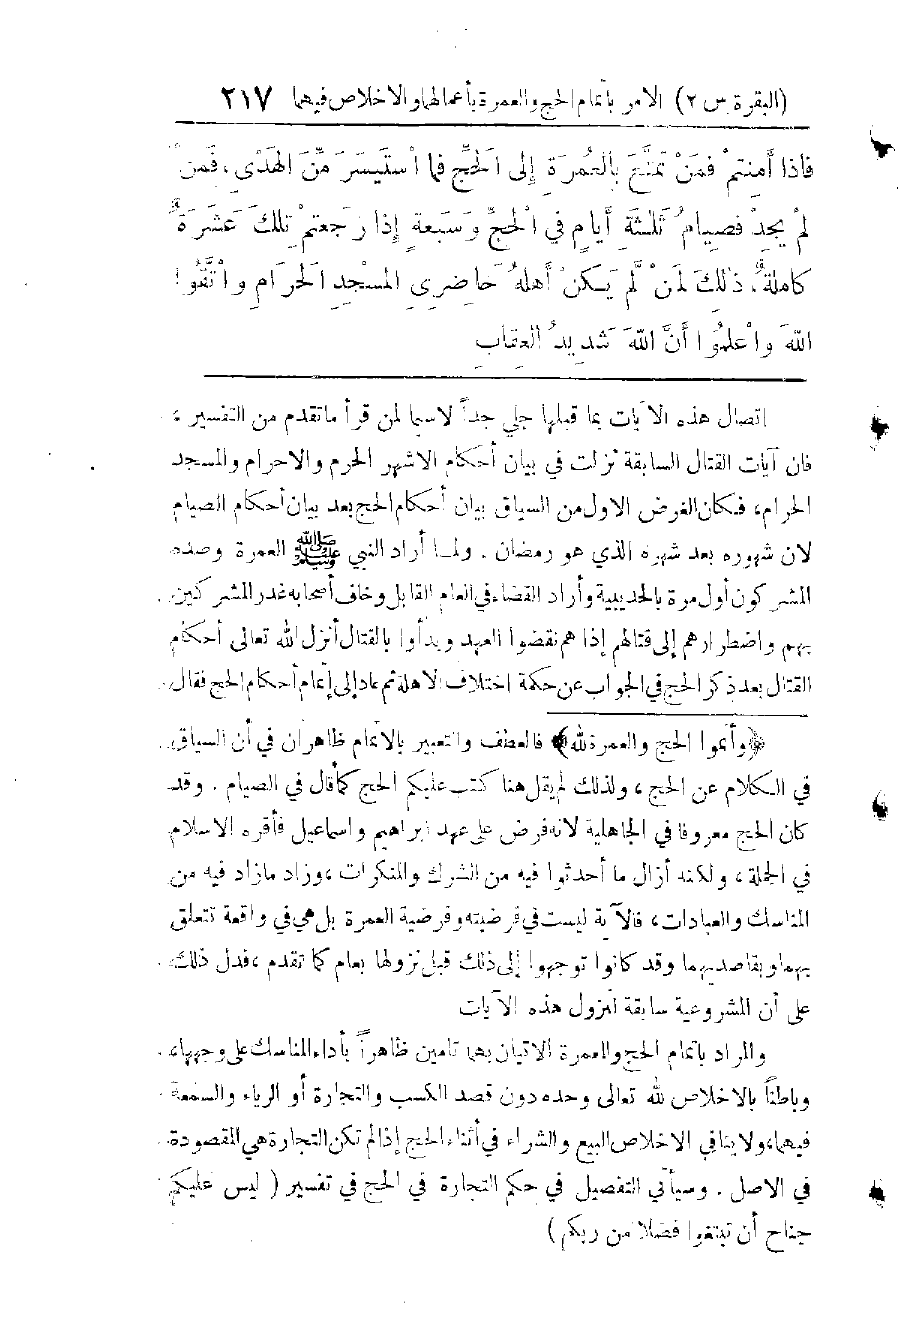 (البقرة س ٢) الامر بأتمام الحج والعمرة بأعمالهما والاخلاص فيهما ٢١٧
فاذا أَمِنتمْ فمَنْ تمَتَّعَ بِالعُمرَةِ إلى الحَجِّ فما اُستَيسَرَ مِّنَ الهَدْيِ، فَمنْ
لمْ يجِدْ فصِيامُ ثلثةِ أَيامٍ في الحَجِّ وَسَبعةٍ إذا رَجعتمْ تِلكَ عَشَرَةٌ
كاملةٌ، ذٰلِكَ لمَنْ لَّم يَكنْ أَهلهُ حَاضِرِي المسْجِدِ الحَرَامِ واتَّقُوا
اللهَ واْعلمُوا أنَّ اللهَ شدِيدُ العِقابِ
اتصال هذه الآيات بما قبلها جلي جداً لاسيما لمن قرأ ماتقدم من التفسير ،
فان آيات القتال السابقة نزلت في بيان أحكام الاشهر الحرم والاحرام والمسجد
الحرام، فكان الغرض الاول من السياق بيان أحكام الحج بعد بيان أحكام الصيام
لان شهوره بعد شهره الذي هو رمضان . ولما أراد النبي ﷺ العمرة وصده
المشركون أول مرة بالحديبية وأراد القضاء في العام القابل وخاف أصحابه غدر المشركين
بهم واضطرارهم إلى قتالهم إذا هم نقضوا العهد وبدأوا بالقتال أنزل الله تعالى أحكام
القتال بعد ذكر الحج في الجواب عن حكمة اختلاف الاهلة ثم عاد إلى إتمام أحكام الحج فقال
﴿وأتموا الحج والعمرة لله﴾ فالعطف والتعبير بالاتمام ظاهران في أن السياق
في الكلام عن الحج ، ولذلك لم يقل هنا كتب عليكم الحج كما قال في الصيام . وقد
كان الحج معروفا في الجاهلية لانه فرض على عهد ابراهيم واسماعيل فأقره الاسلام
في الجملة ، ولكنه أزال ما أحدثوا فيه من الشرك والمنكرات ، وزاد مازاد فيه من
المناسك والعبادات، فالآية ليست في فرضيته وفرضية العمرة بل هي في واقعة تتعلق
بهما وبقاصديهما وقد كانوا توجهوا إلى ذلك قبل نزولها بعام كما تقدم ، فدل ذلك
على أن المشروعية سابقة لنزول هذه الآيات
والمراد باتمام الحج والعمرة الاتيان بهما تامين ظاهراً بأداء المناسك على وجهها،
وباطناً بالاخلاص لله تعالى وحده دون قصد الكسب والتجارة أو الرياء والسمعة
فيهما، ولا ينافي الاخلاص البيع والشراء في أثناء الحج إذا لم تكن التجارة هي المقصودة
في الاصل . وسيأتي التفصيل في حكم التجارة في الحج في تفسير ( ليس عليكم
جناح أن تبتغوا فضلا من ربكم )